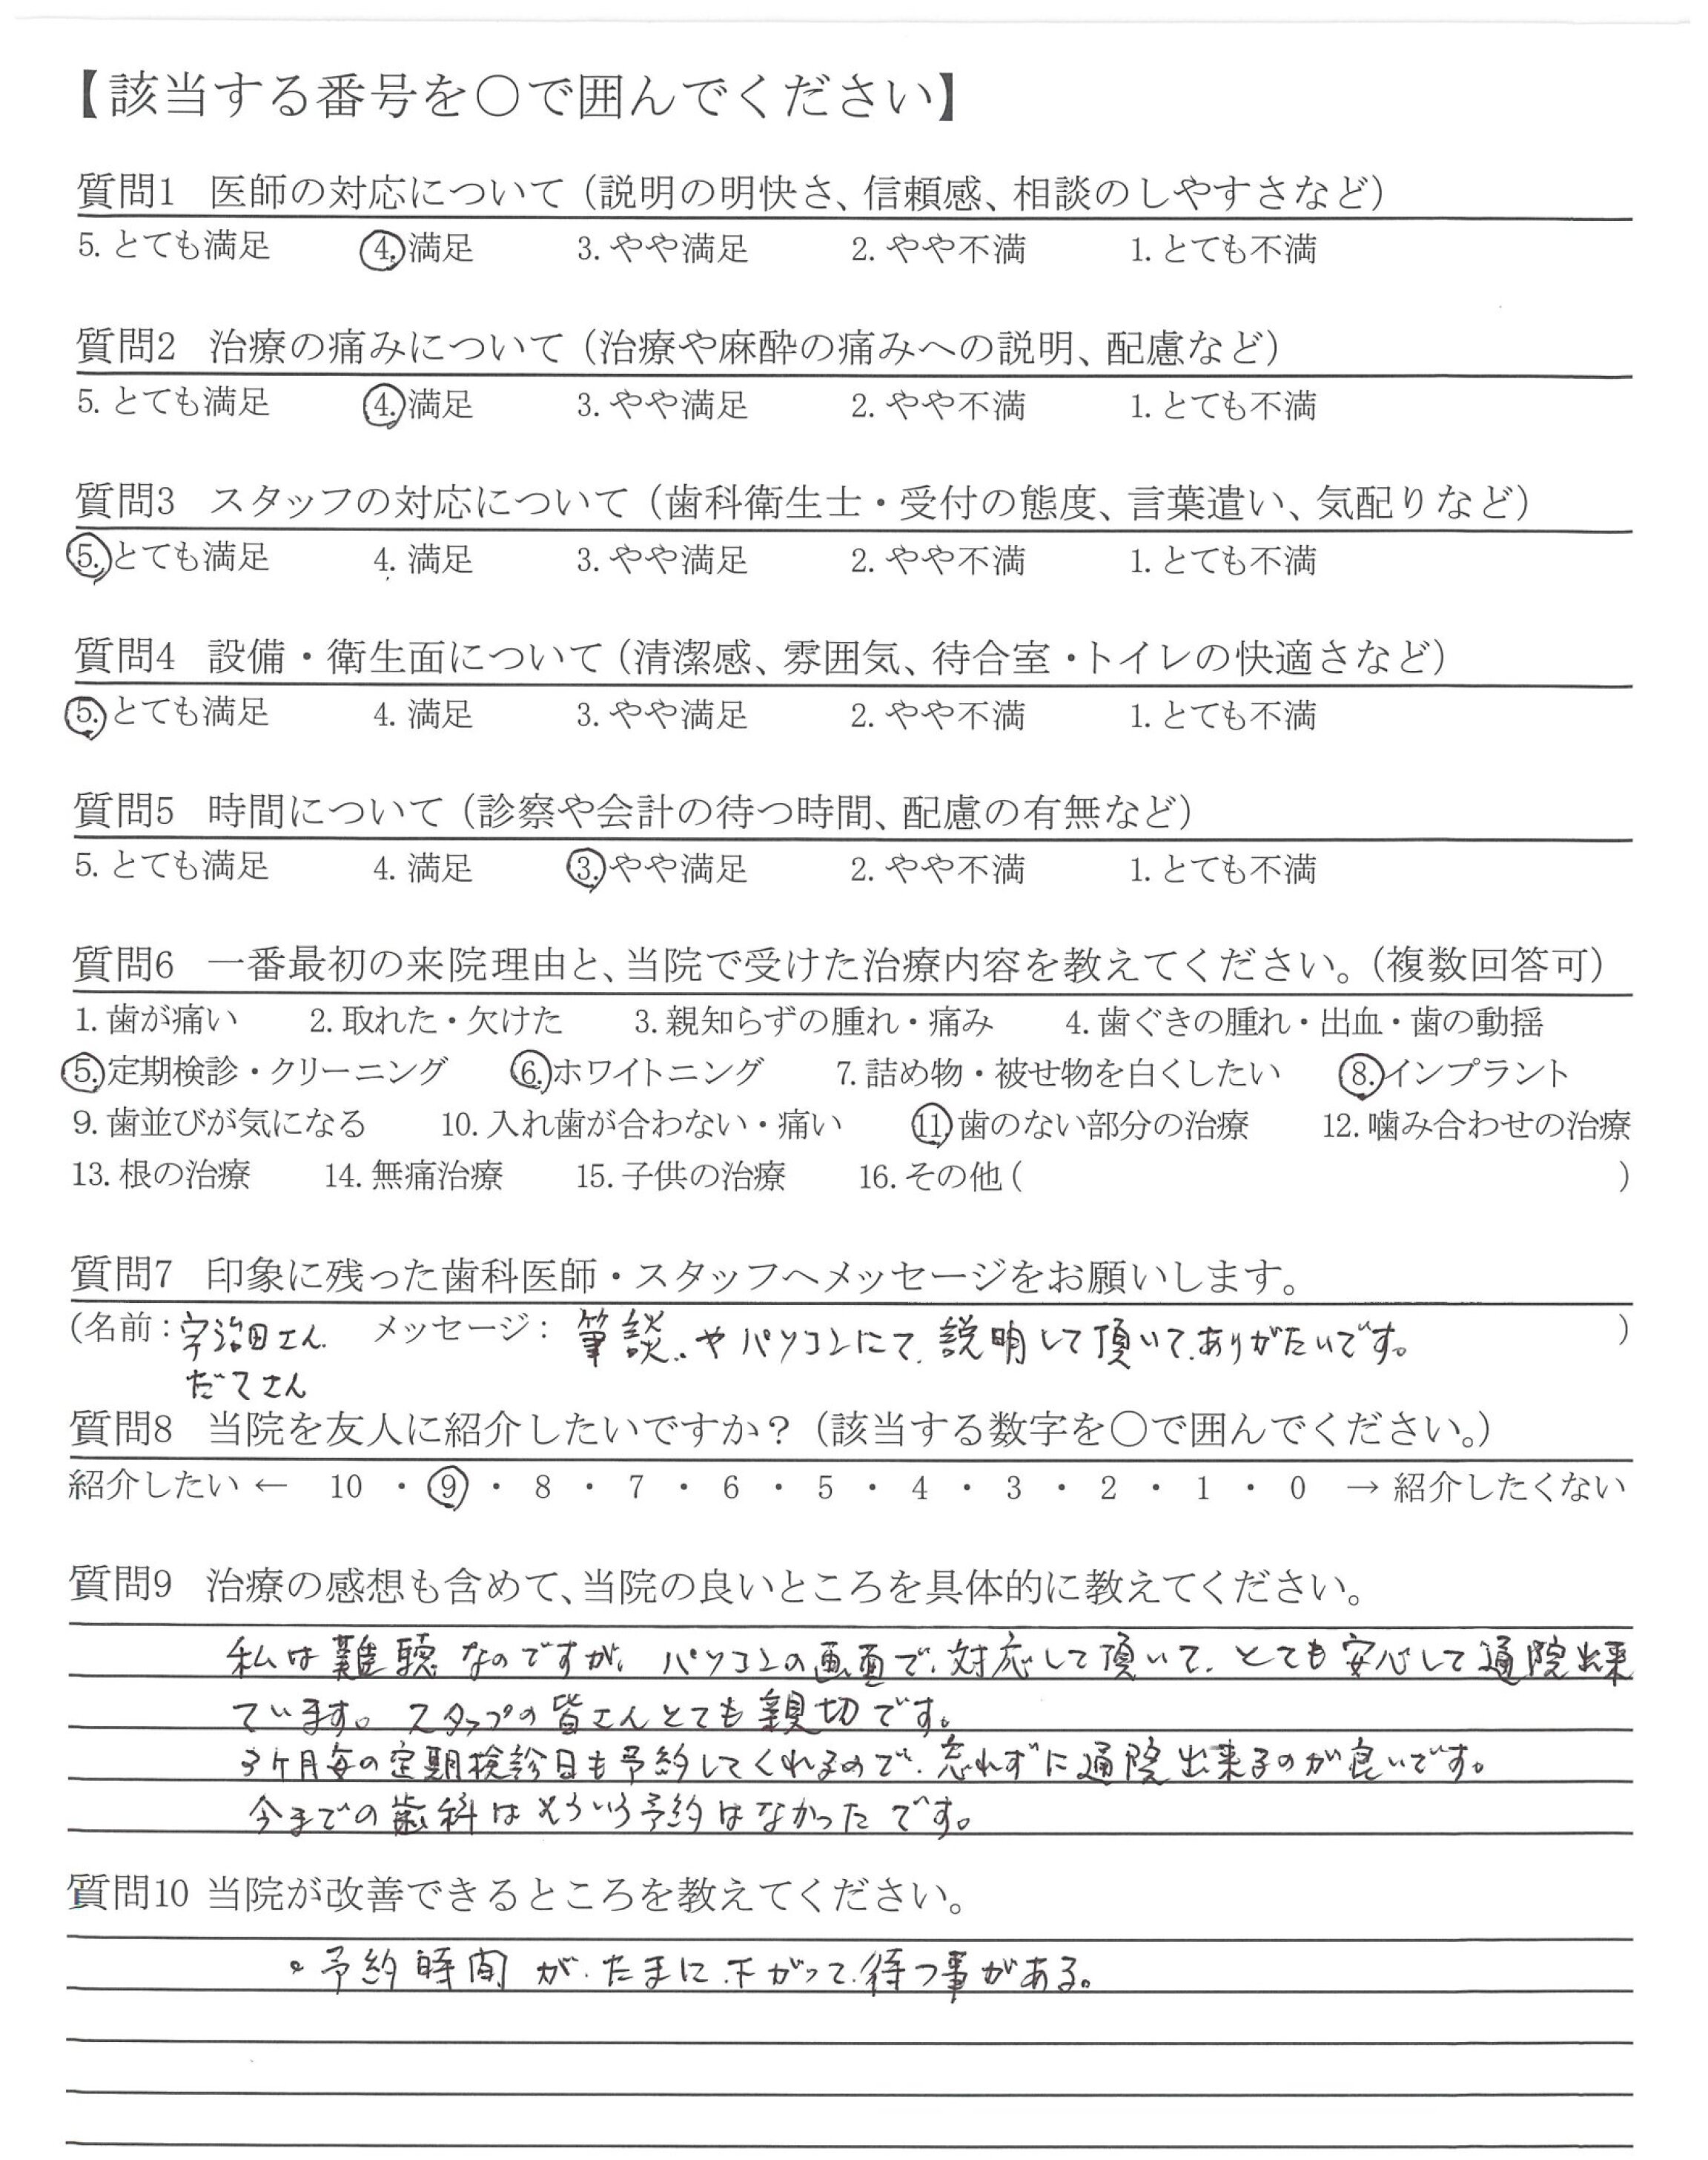 【該当する番号を〇で囲んでください】
質問1 医師の対応について（説明の明快さ、信頼感、相談のしやすさなど）
5. とても満足 4. 満足 3. やや満足 2. やや不満 1. とても不満
質問2 治療の痛みについて（治療や麻酔の痛みへの説明、配慮など）
5. とても満足 4. 満足 3. やや満足 2. やや不満 1. とても不満
質問3 スタッフの対応について（歯科衛生士・受付の態度、言葉遣い、気配りなど）
5. とても満足 4. 満足 3. やや満足 2. やや不満 1. とても不満
質問4 設備・衛生面について（清潔感、雰囲気、待合室・トイレの快適さなど）
5. とても満足 4. 満足 3. やや満足 2. やや不満 1. とても不満
質問5 時間について（診察や会計の待つ時間、配慮の有無など）
5. とても満足 4. 満足 3. やや満足 2. やや不満 1. とても不満
質問6 一番最初の来院理由と、当院で受けた治療内容を教えてください。（複数回答可）
1. 歯が痛い 2. 取れた・欠けた 3. 親知らずの腫れ・痛み 4. 歯ぐきの腫れ・出血・歯の動揺
5. 定期検診・クリーニング 6. ホワイトニング 7. 詰め物・被せ物を白くしたい 8. インプラント
9. 歯並びが気になる 10. 入れ歯が合わない・痛い 11. 歯のない部分の治療 12. 噛み合わせの治療
13. 根の治療 14. 無痛治療 15. 子供の治療 16. その他（ ）
質問7 印象に残った歯科医師・スタッフへメッセージをお願いします。
（名前：宇治田さん メッセージ：筆談、やパソコンにて、説明して頂いて、ありがたいです。）
だてさん
質問8 当院を友人に紹介したいですか？（該当する数字を〇で囲んでください。）
紹介したい ← 10 ・ 9 ・ 8 ・ 7 ・ 6 ・ 5 ・ 4 ・ 3 ・ 2 ・ 1 ・ 0 → 紹介したくない
質問9 治療の感想も含めて、当院の良いところを具体的に教えてください。
私は難聴なのですが、パソコンの画面で、対応して頂いて、とても安心して通院出来
ています。スタッフの皆さんとても親切です。
3ケ月毎の定期検診日も予約してくれるので、忘れずに通院出来るのが良いです。
今までの歯科はそういう予約はなかったです。
質問10 当院が改善できるところを教えてください。
。予約時間が、たまに、下がって、待つ事がある。